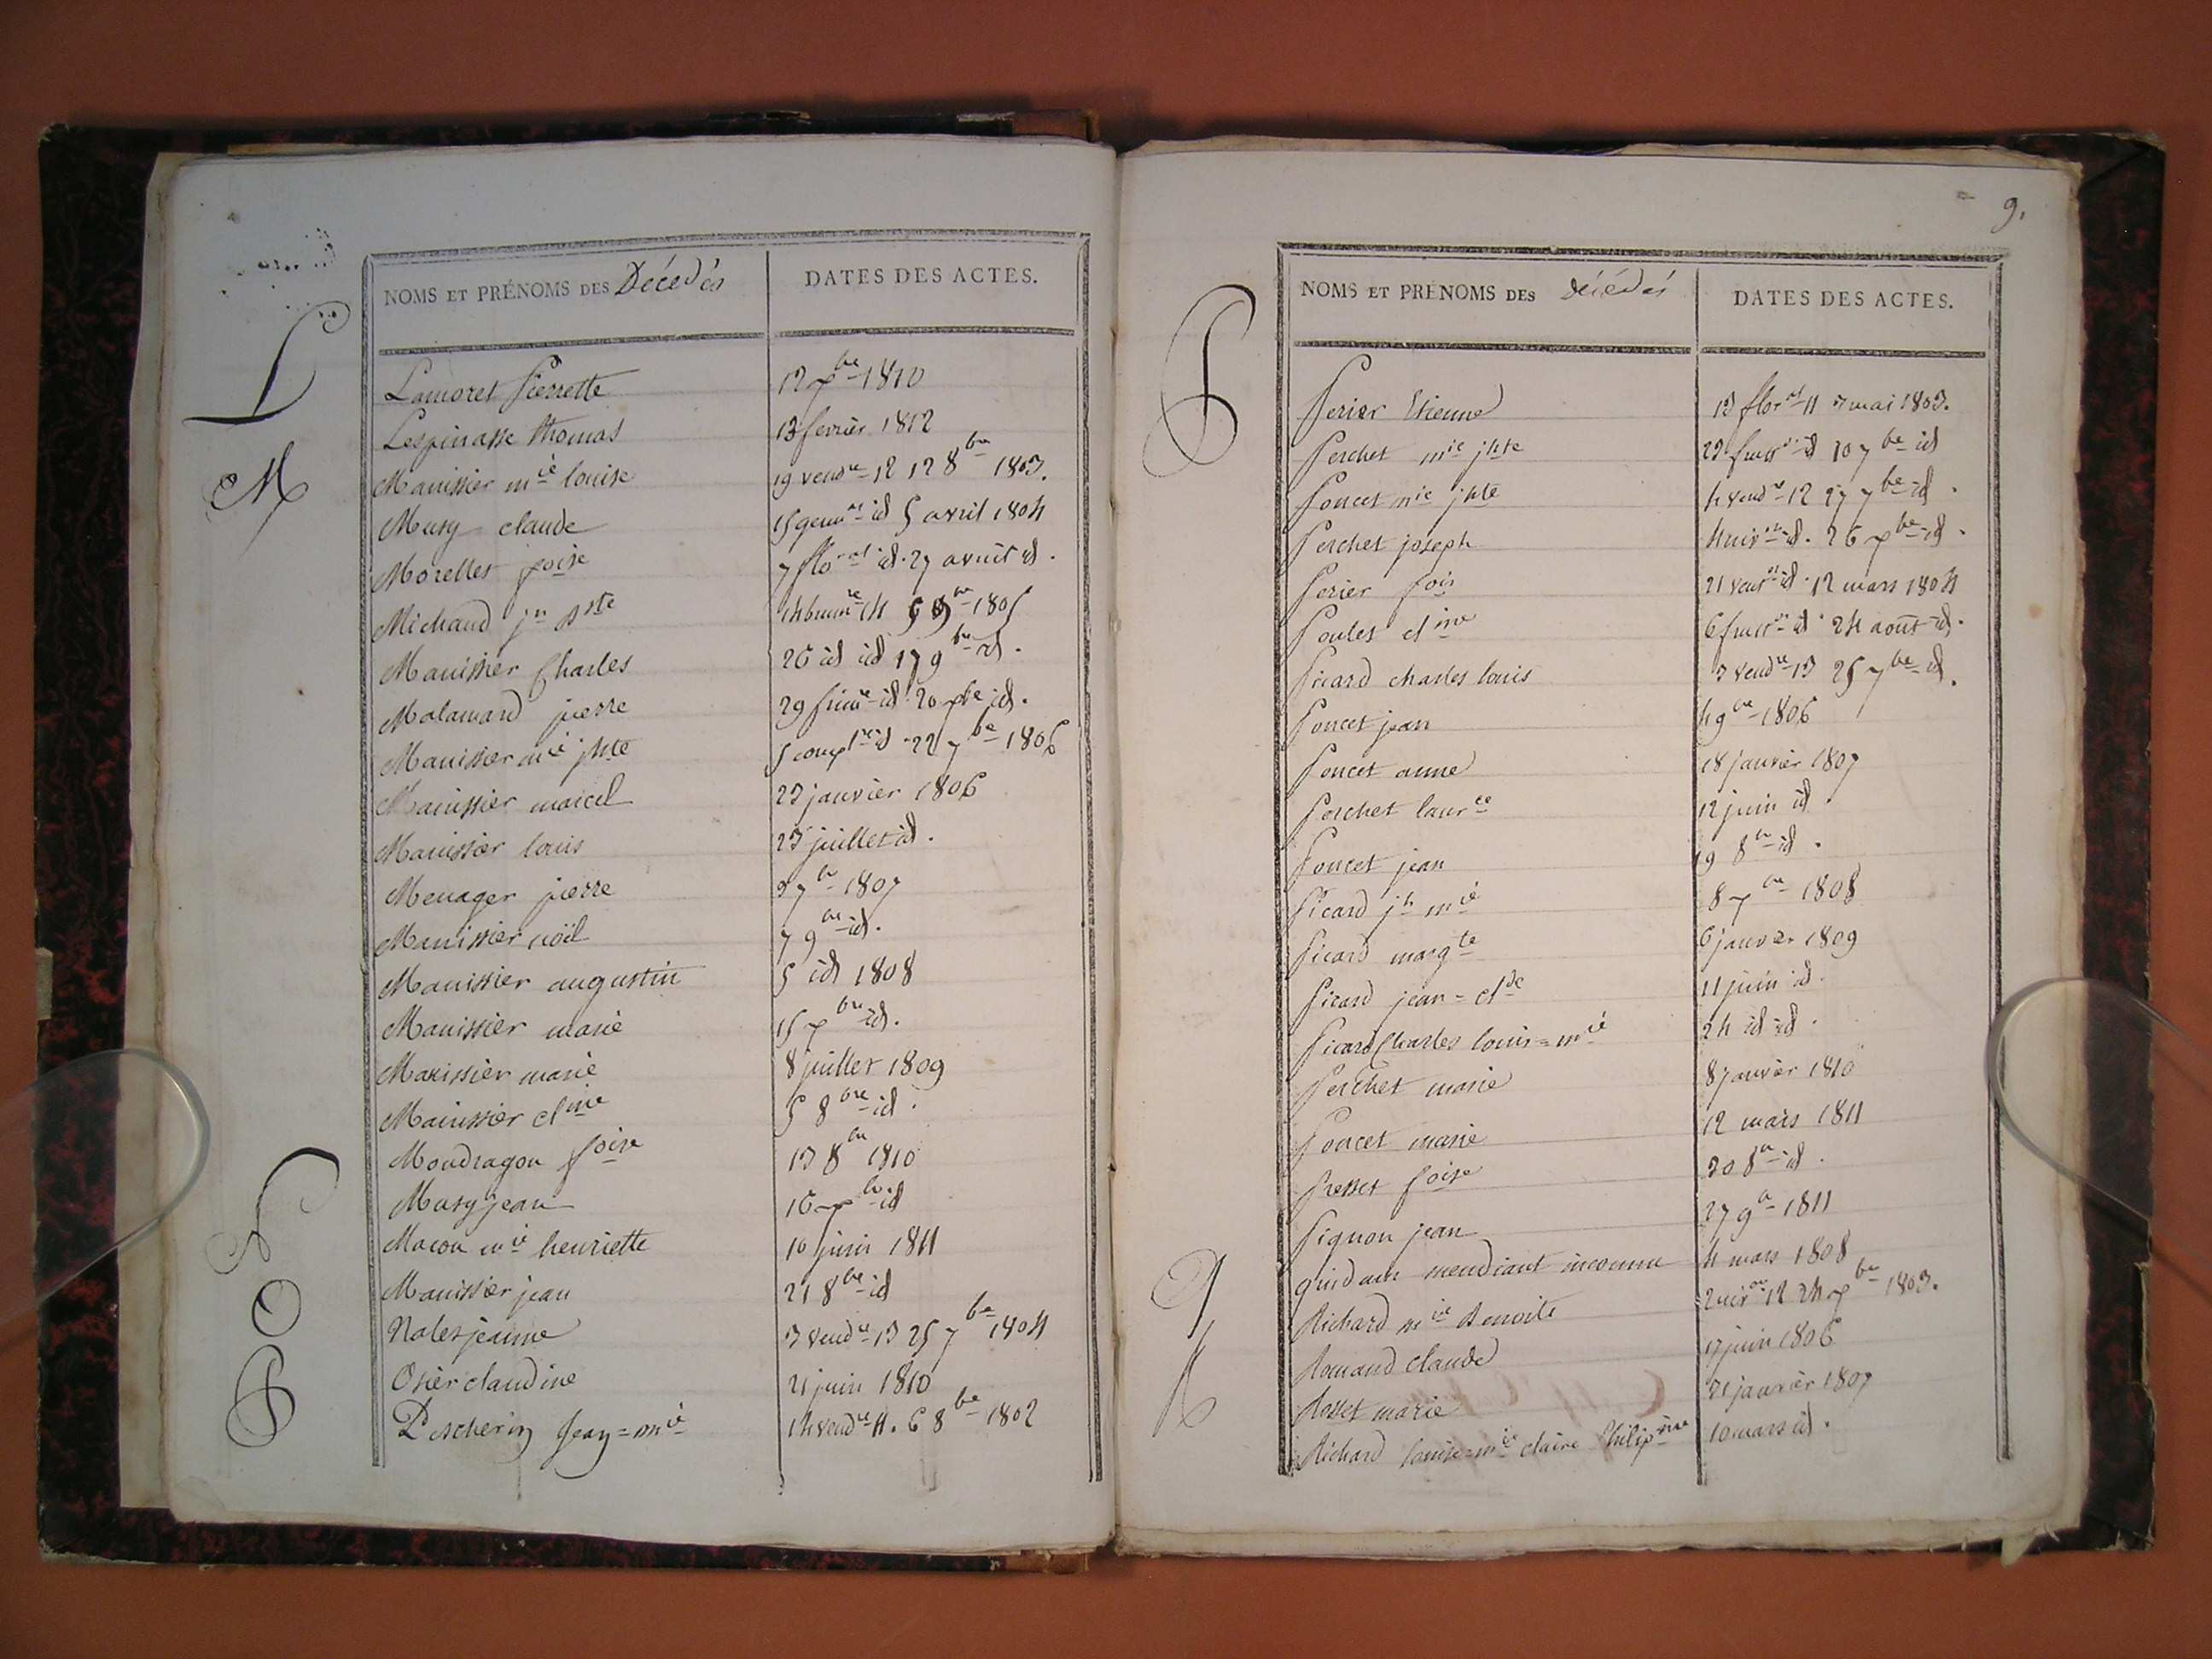 L
M
N
O
P
NOMS ET PRÉNOMS DES Décédés DATES DES ACTES.
Lamoret Pierrette 12 xbre 1810
Lespinasse thomas 13 fevrier 1812
Manissier mie louise 19 vendre 12 12 8bre 1803.
Musy claude 15 germal id 5 avril 1804
Morellet foise 7 floral id. 27 avril id.
Michaud jn bste 14 brumre 14 5 9bre 1805
Manissier Charles 26 id id 17 9bre id.
Malamard pierre 29 frimre id. 20 xbre id.
Manissier mie jhte 5 complre id. 22 7bre 1806
Manissier marcel 23 janvier 1806
Manissier louis 23 juillet id.
Menager pierre 3 7bre 1807
Manissier noël 7 9bre id.
Manissier augustin 5 id 1808
Manissier marie 15 xbre id.
Manissier marie 8 juillet 1809
Manissier cline 5 8bre id.
Mondragon foise 13 8bre 1810
Musy jean 16 xbre id
Macon mie henriette 10 juin 1811
Manissier jean 21 8bre id
Nalet jeanne 3 vendre 13 25 7bre 1804
Osier claudine 21 juin 1810
Pescherin Jean=mie 14 vendre 11. 6 8bre 1802
9.
P
Q
R
NOMS ET PRÉNOMS DES décédés DATES DES ACTES.
Perier Etienne 13 floral 11 3 mai 1803.
Perchet mie jhte 23 fructor id 10 7bre id
Poncet mie jhte 4 vendre 12 27 7bre id.
Perchet joseph 4 nivose id. 26 xbre id.
Perier fois 21 ventose id. 12 mars 1804
Poulet cline 6 fructor id. 24 août id.
Picard charles louis 3 vendre 13 25 7bre id.
Poncet jean 4 9bre 1806
Poncet anne 18 janvier 1807
Perchet laurce 12 juin id.
Poncet jean 19 8bre id.
Picard jh mie 8 7bre 1808
Picard margte 6 janvier 1809
Picard jean=clde 11 juin id.
Picard Charles louis=mie 24 id id.
Perchet marie 8 janvier 1810
Poncet marie 12 mars 1811
Presset foise 20 8bre id.
Pignon jean 27 9bre 1811
quidam mendiant inconnu 4 mars 1808
Richard mie Benoite 2 nivose 12 24 xbre 1803.
Romand claude 17 juin 1806
Rosset marie 21 janvier 1807
Richard louise=mie claire Philipine 10 mars id.